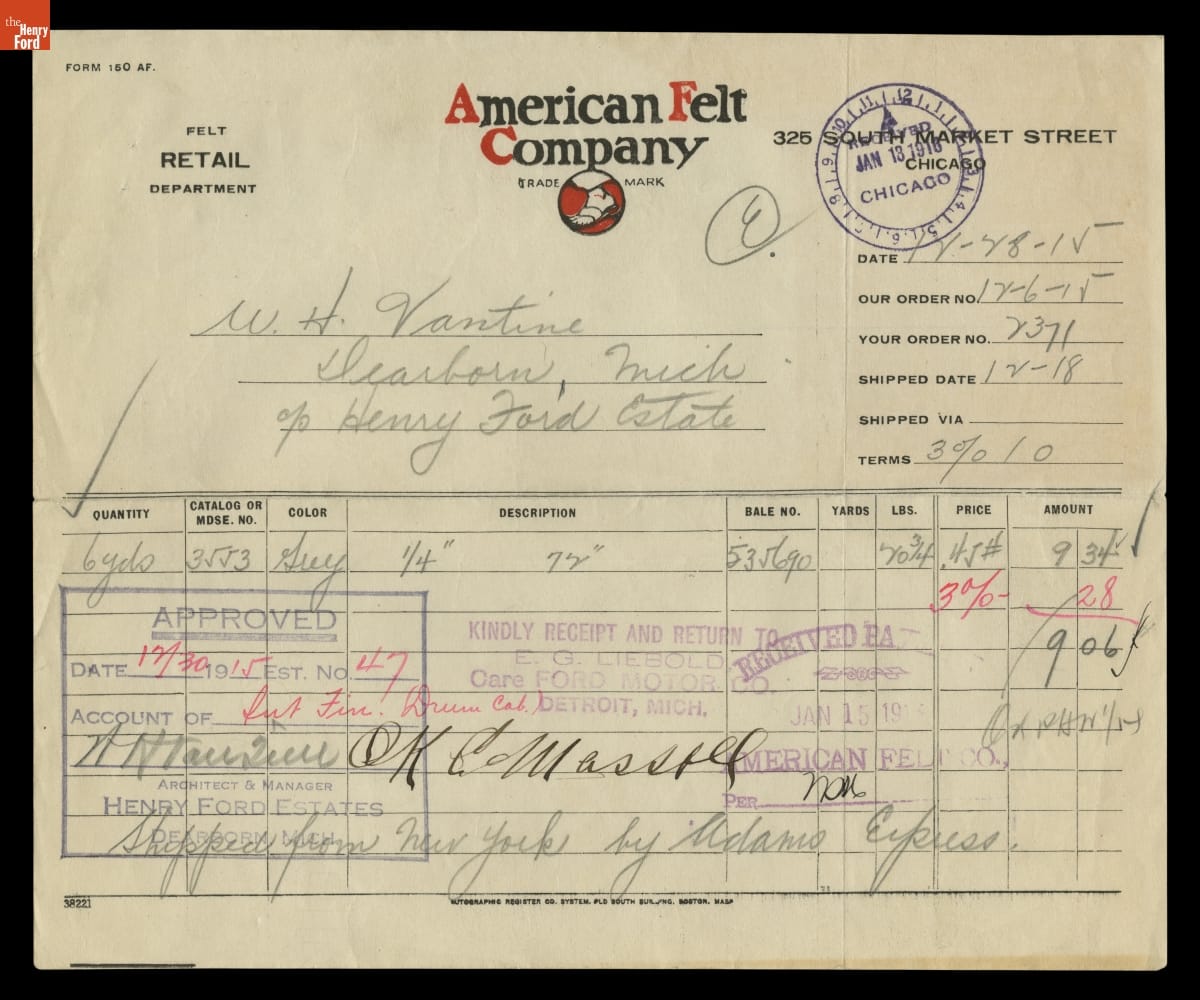 the Henry Ford
FORM 150 AF.
FELT
RETAIL
DEPARTMENT
American Felt
Company
TRADE MARK
325 SOUTH MARKET STREET
CHICAGO
RECEIVED
JAN 13 1916
CHICAGO
E.
DATE 12-28-15
OUR ORDER NO. 12-6-15
YOUR ORDER NO. 2371
SHIPPED DATE 12-18
SHIPPED VIA
TERMS 3% 10
W. H. Vantine
Dearborn, Mich
c/o Henry Ford Estate
QUANTITY CATALOG OR MDSE. NO. COLOR DESCRIPTION BALE NO. YARDS LBS. PRICE AMOUNT
6 yds 3553 Grey 1/4" 72" 535690 20 3/4 .45# 9 34
3% 28
9 06
APPROVED
DATE 12/30 1915 EST. NO. 47
ACCOUNT OF Int Fin. (Drum Cab.)
ARCHITECT & MANAGER
HENRY FORD ESTATES
DEARBORN, MICH.
KINDLY RECEIPT AND RETURN TO
E. G. LIEBOLD
Care FORD MOTOR CO.
DETROIT, MICH.
RECEIVED PA
JAN 15 191
AMERICAN FELT CO.,
PER
OK
Shipped from New York by Adams Express.
38221
AUTOGRAPHIC REGISTER CO. SYSTEM, OLD SOUTH BUILDING, BOSTON, MASS